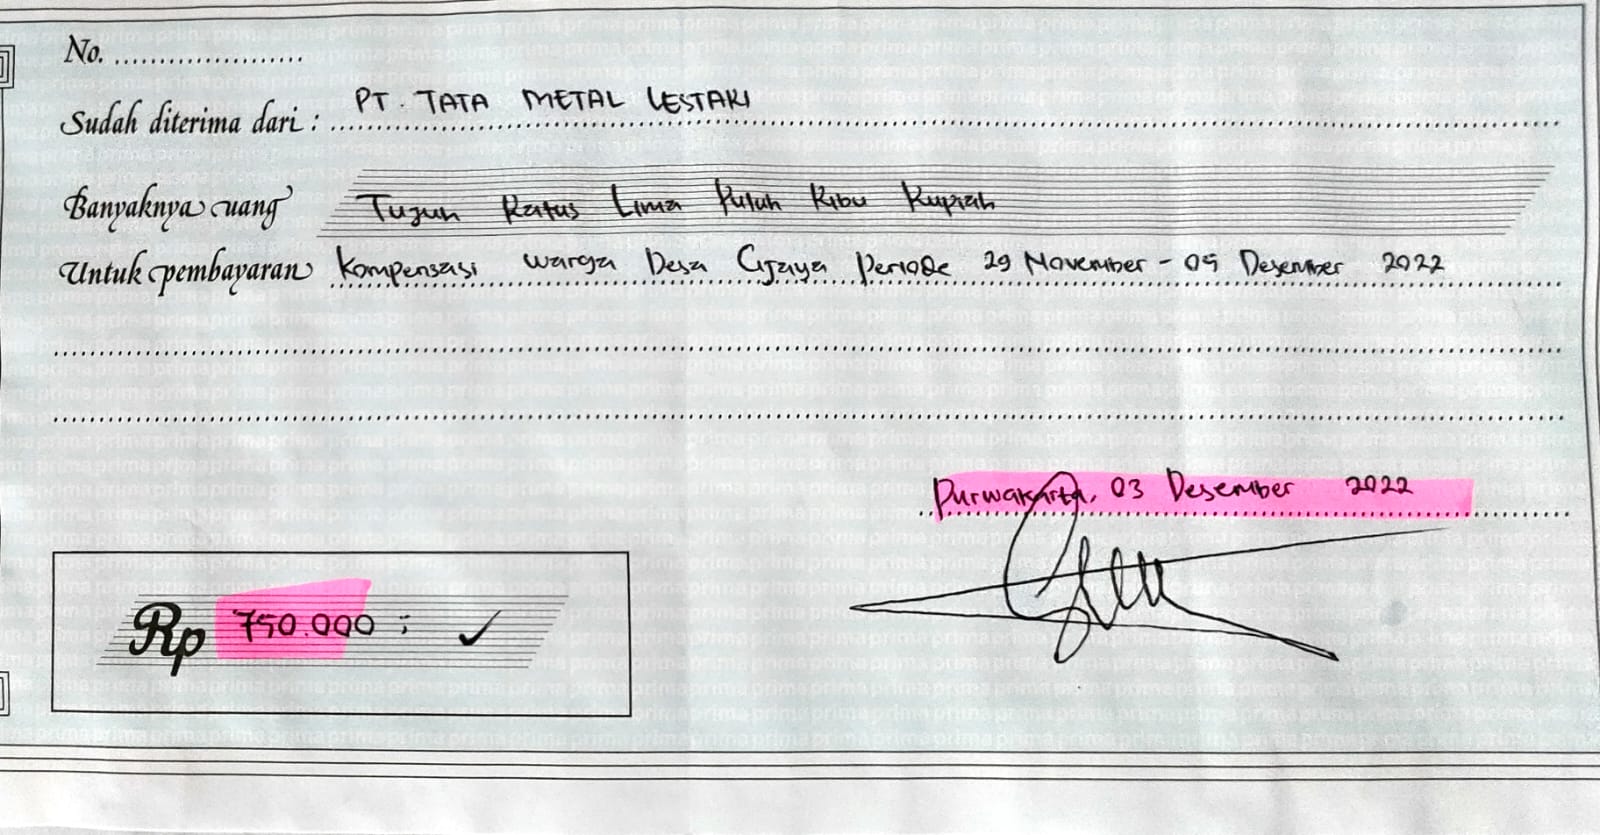 No. .....................
Sudah diterima dari : PT. TATA METAL LESTARI
Banyaknya uang Tujuh Ratus Lima Puluh Ribu Rupiah
Untuk pembayaran Kompensasi warga Desa Cijaya Periode 29 November - 05 Desember 2022
Purwakarta, 03 Desember 2022
Rp 750.000 ;